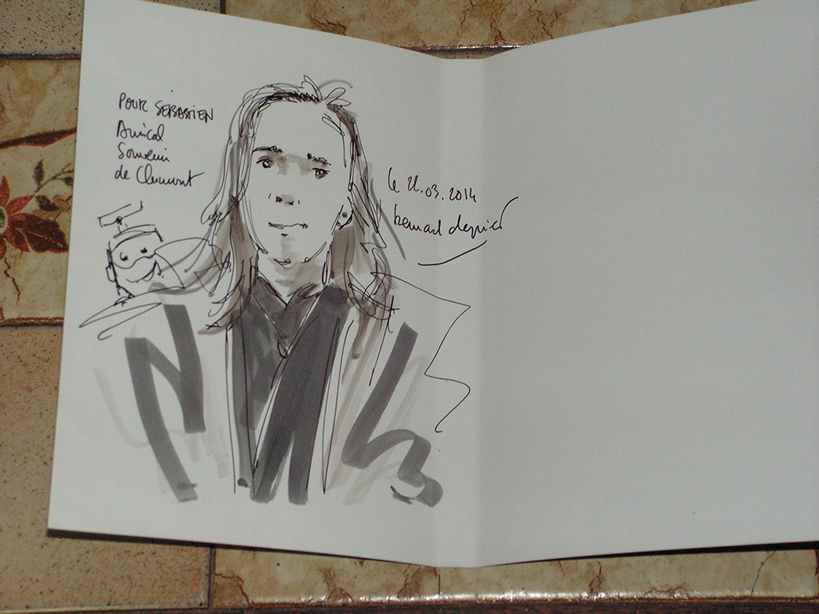 POUR SÉBASTIEN
Amical
Souvenir
de Clermont
le 22.03.2014
bernard